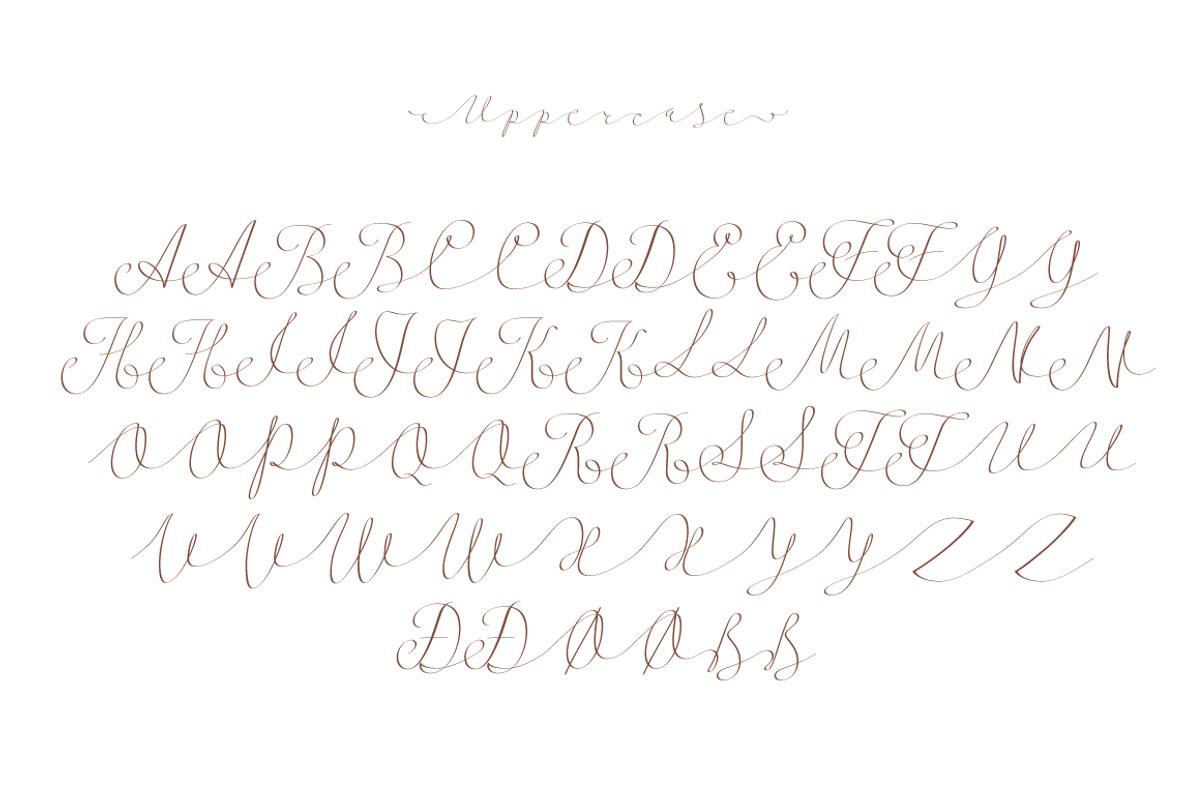 Uppercase
A A B B C C D D E E F F G G
H H I I J J K K L L M M N N
O O P P Q Q R R S S T T U U
V V W W X X Y Y Z Z
Đ Đ Ø Ø ß ß